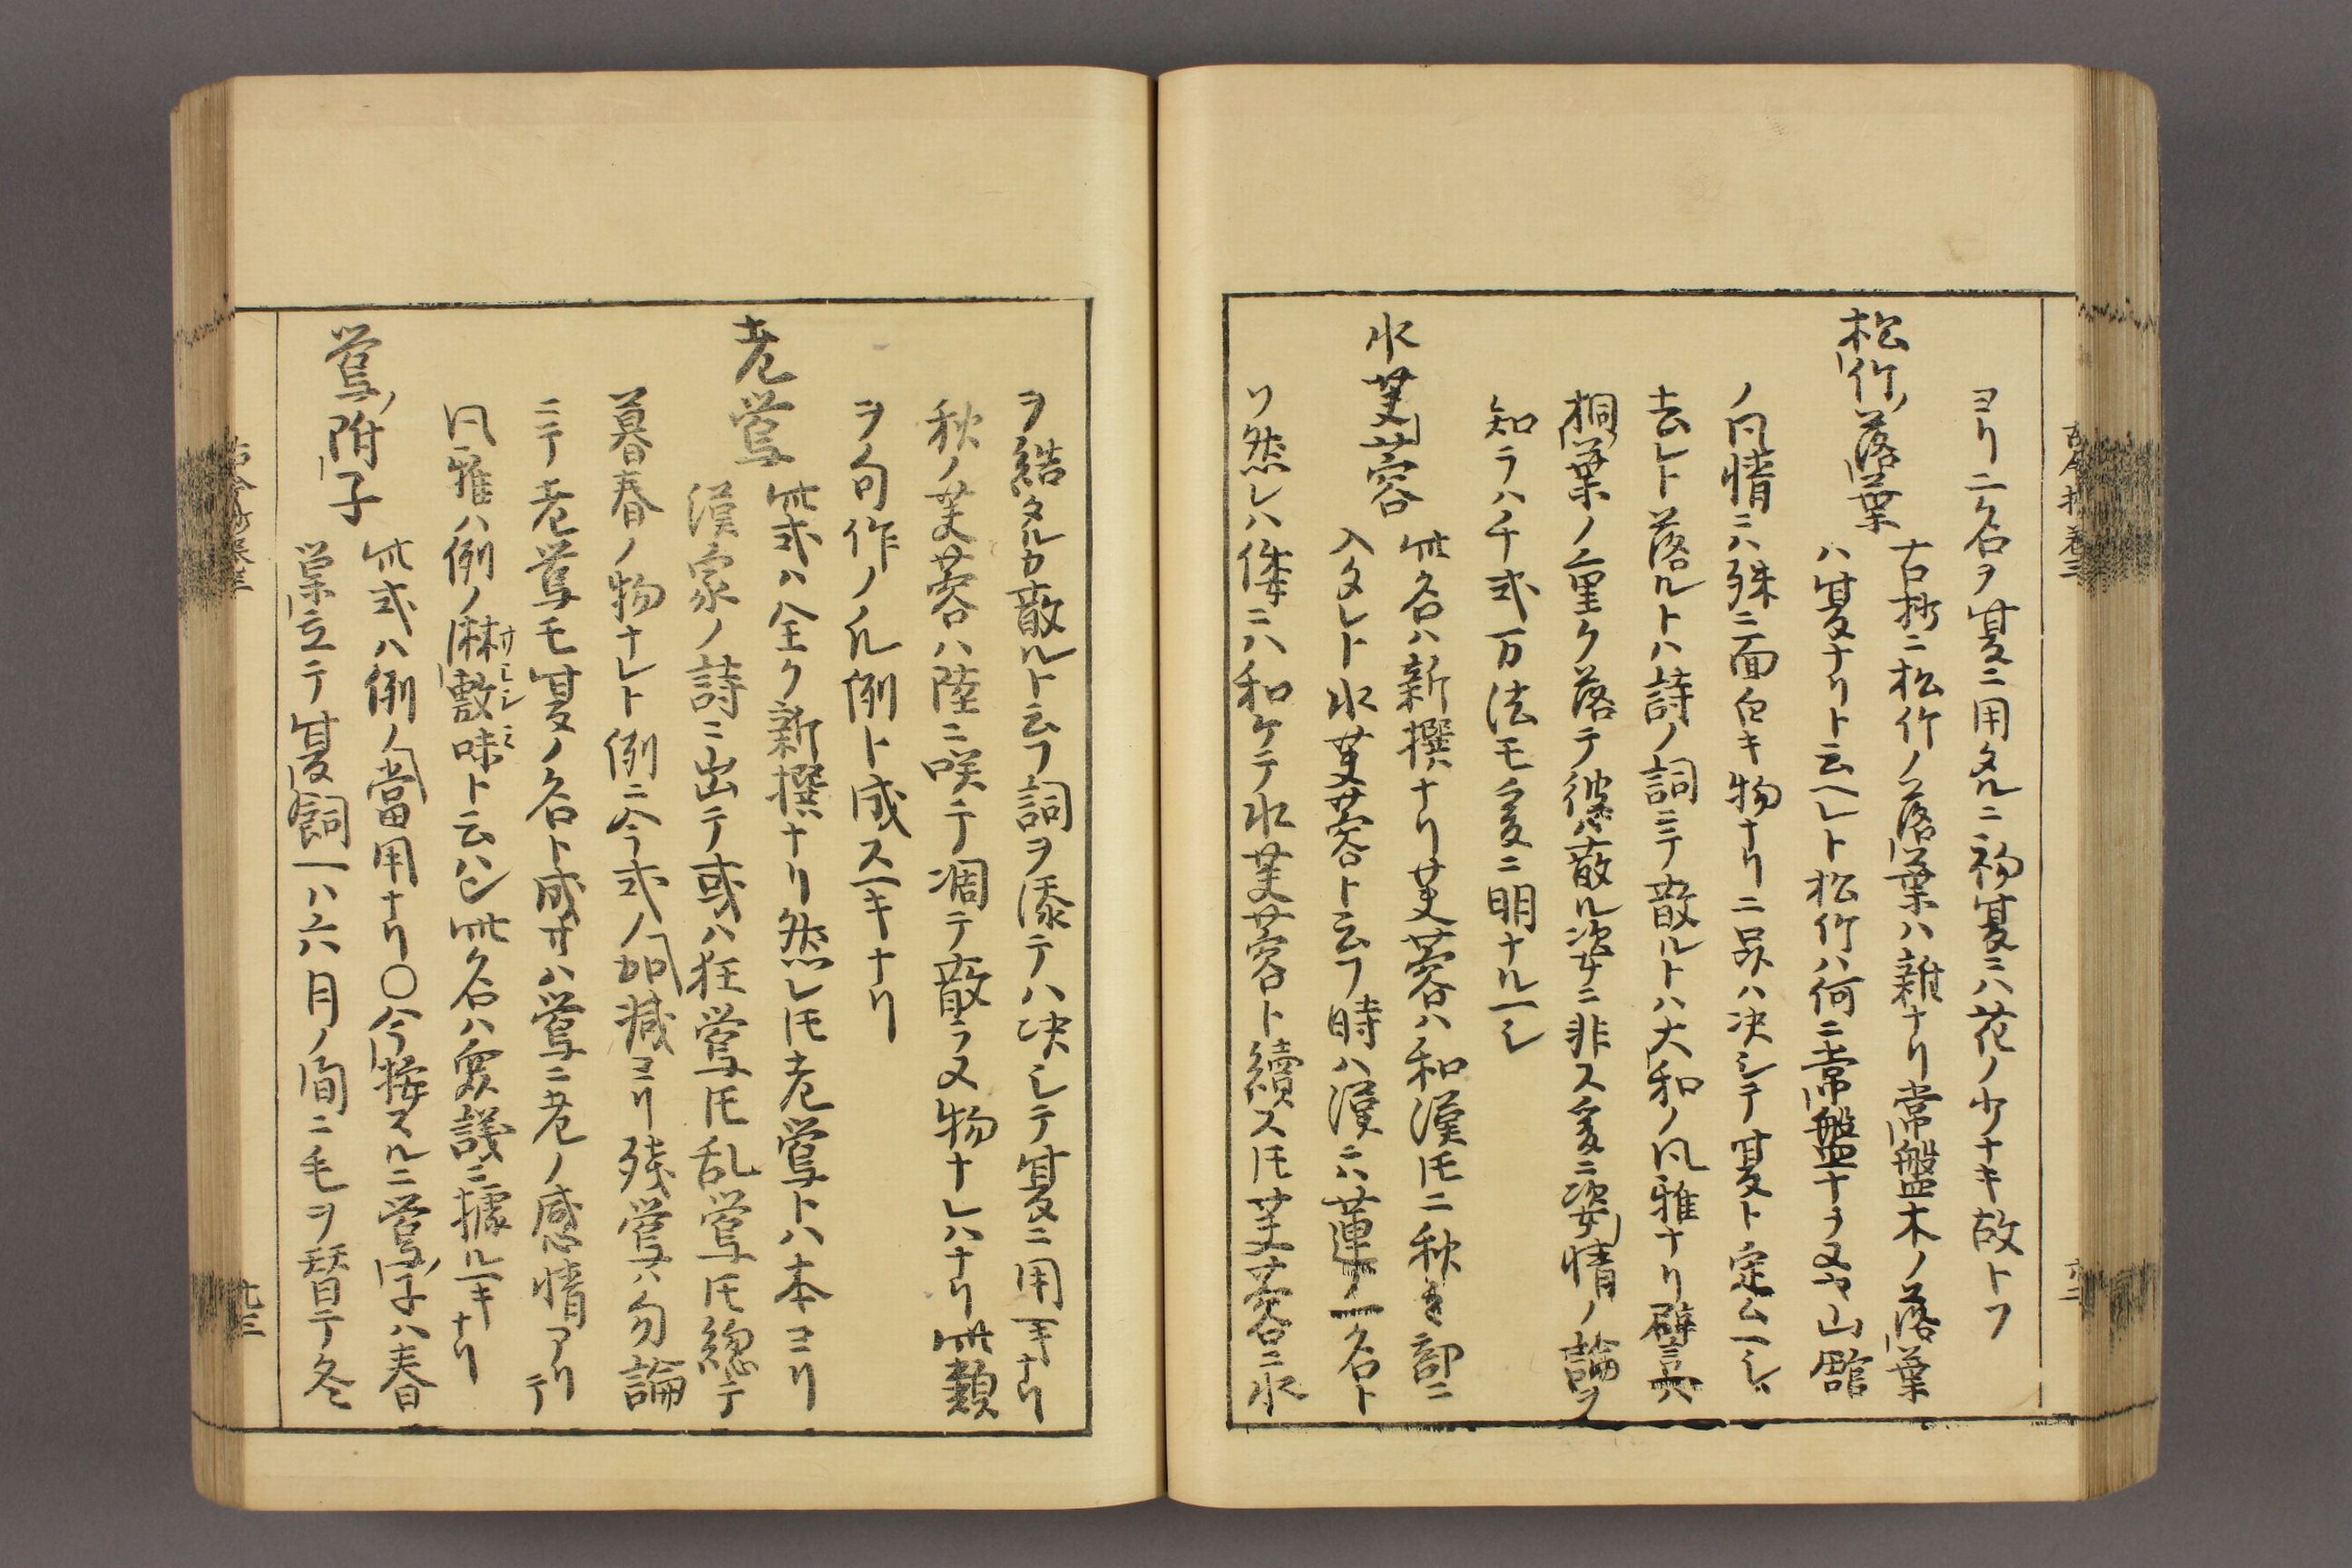 ヨリ二名ヲ夏ニ用タルニ初夏ニハ花ノ少ナキ故トソ
松竹ノ落葉
古抄ニ松竹ノ落葉ハ雑ナリ常盤木ノ落葉
ハ夏ナリト云ヘレト松竹ハ何ニ常盤ナラヌヤ山舘
ノ凨情ニハ殊ニ面白キ物ナリ二品ハ决シテ夏ト定ムヘシ
去レト落ルトハ詩ノ詞ニテ散ルトハ大和ノ凨雅ナリ譬ハ
桐ノ葉ノ重ク落テ彼ハ散ル姿ニ非ス爰ニ姿情ノ論ヲ
知ラハ千式万法モ爰ニ明ナルヘシ
水芙蓉
此名ハ新撰ナリ芙蓉ハ和漢𪜈ニ秋ノ部ニ
入タレト水芙蓉ト云フ時ハ漢ニハ蓮ノ一名ト
ソ然レハ俳ニハ和ケテ水芙蓉ト續ス𪜈芙蓉ニ水
ヲ結タルカ散ルト云フ詞ヲ添テハ决シテ夏ニ用ヘキナリ
秋ノ芙蓉ハ陸ニ咲テ凋テ散ラヌ物ナレハナリ此類
ヲ句作ノ凡例ト成スヘキナリ
老鶯
此式ハ全ク新撰ナリ然レ𪜈老鶯トハ本ヨリ
漢家ノ詩ニ出テ或ハ狂鶯𪜈乱鶯𪜈總テ
暮春ノ物ナレト例ニ今式ノ加减ヨリ残鶯ハ勿論
ニテ老鶯モ夏ノ名ト成サハ鶯ニ老ノ感情アリテ
凨雅ハ例ノ麻敷味ト云ハン此名ハ衆議ニ據ルヘキナリ
サヒシミ
鶯ノ附子
此式ハ例ノ當用ナリ〇今按スルニ鶯ノ子ハ春
巣立テ夏飼ヘハ六月ノ間ニ毛ヲ替テ冬
古今抄巻三